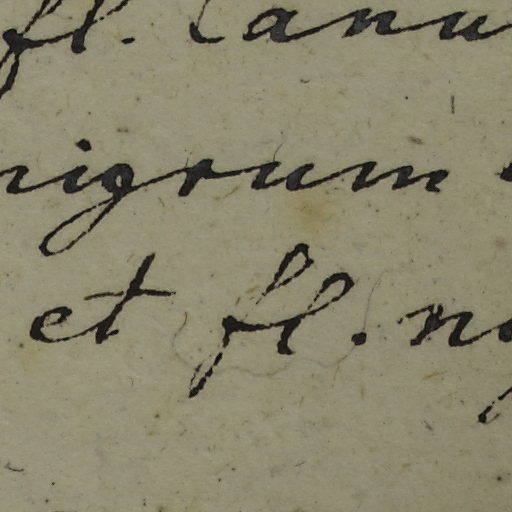 fl. Canu
nigrum
et fl. ng